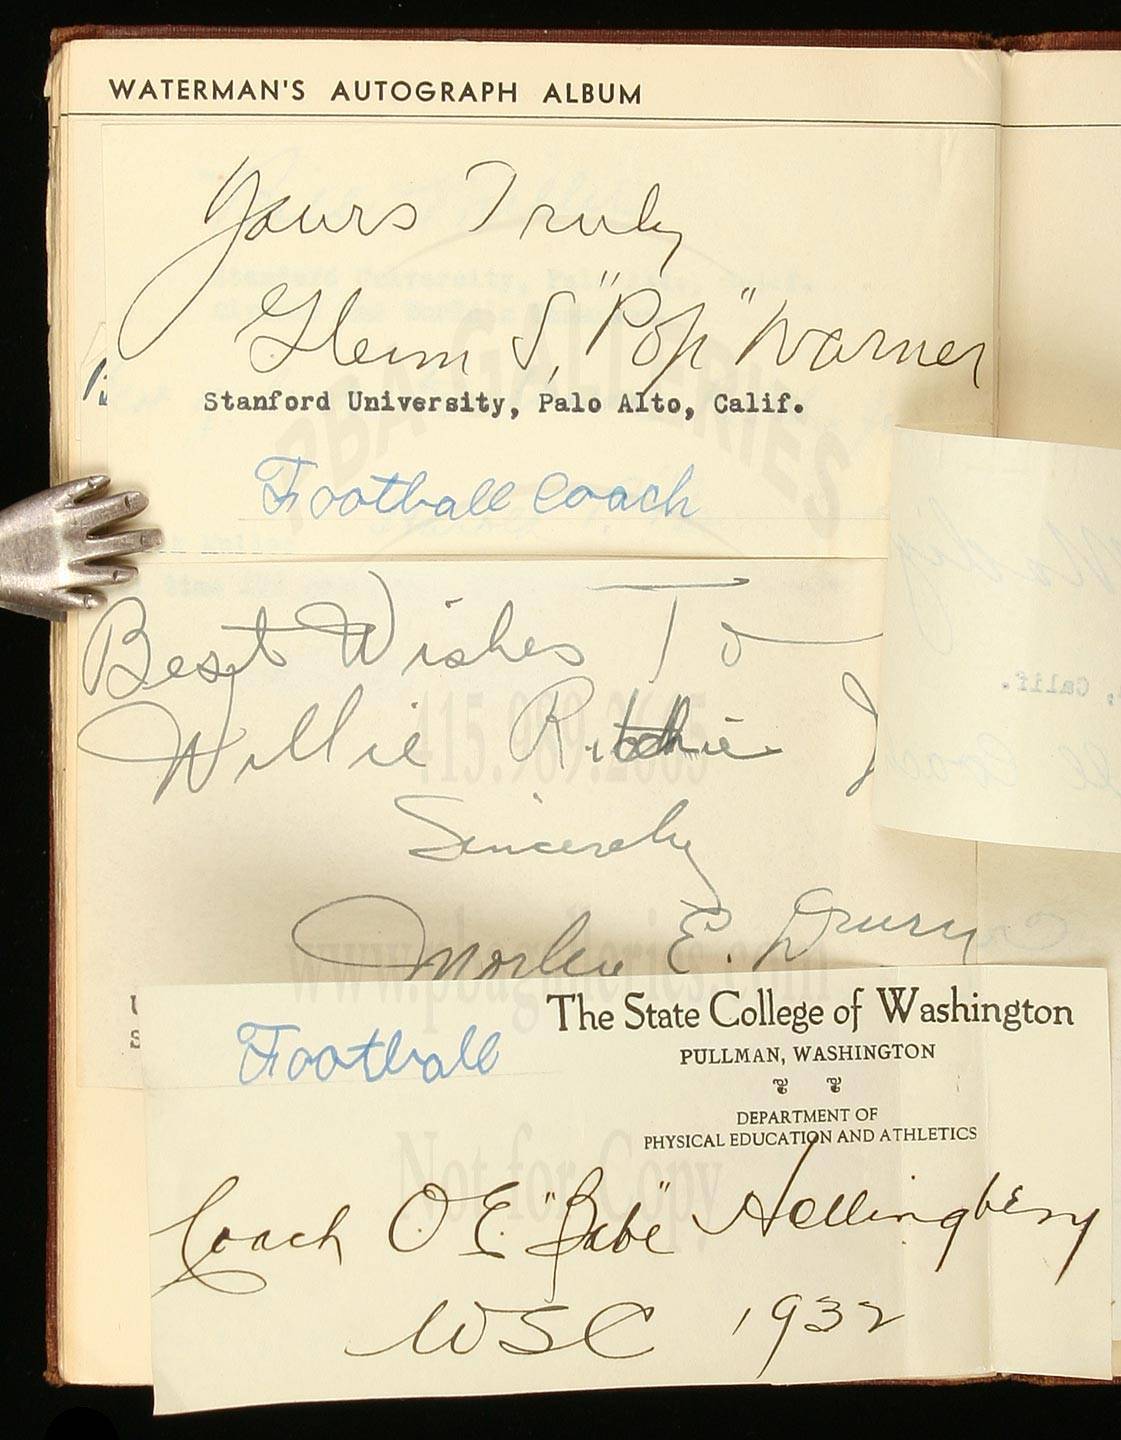 WATERMAN'S AUTOGRAPH ALBUM
Yours Truly
Glenn S. "Pop" Warner
Stanford University, Palo Alto, Calif.
Football Coach
Best Wishes To
Willie Ritchie
Sincerely
Morley E. Drury
Football
The State College of Washington
PULLMAN, WASHINGTON
DEPARTMENT OF
PHYSICAL EDUCATION AND ATHLETICS
Coach O.E. "Babe" Hollingbery
WSC 1932
, Calif.
PBA GALLERIES
415.989.2665
www.pbagalleries.com
Not for Copy